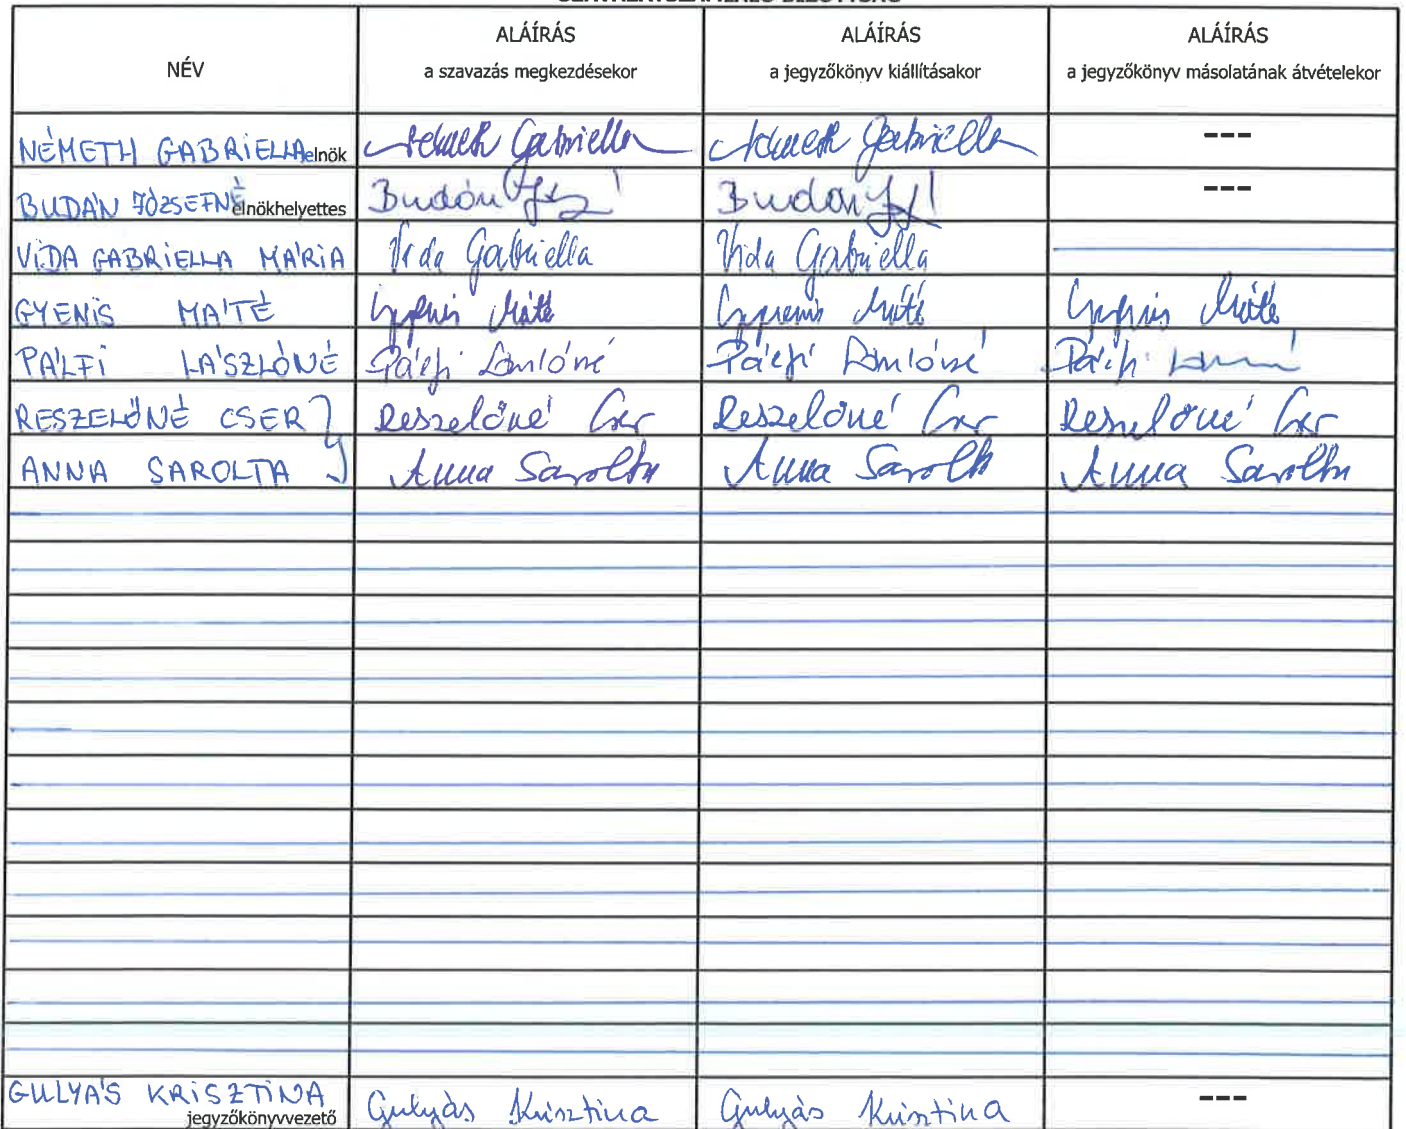 NÉV
ALÁÍRÁS
a szavazás megkezdésekor
ALÁÍRÁS
a jegyzőkönyv kiállításakor
ALÁÍRÁS
a jegyzőkönyv másolatának átvételekor
NÉMETH GABRIELLA elnök Németh Gabriella Németh Gabriella ---
BUDÁN JÓZSEFNÉ elnökhelyettes Budán Budán ---
VIDA GABRIELLA MÁRIA Vida Gabriella Vida Gabriella
GYENIS MÁTÉ Gyenis Máté Gyenis Máté Gyenis Máté
PÁLFI LÁSZLÓNÉ Pálfi Lászlóné Pálfi Lászlóné Pálfi
RESZELŐNÉ CSER Reszelőné Cser Reszelőné Cser Reszelőné Cser
ANNA SAROLTA Anna Sarolta Anna Sarolta Anna Sarolta
GULYÁS KRISZTINA
jegyzőkönyvvezető Gulyás Krisztina Gulyás Krisztina ---